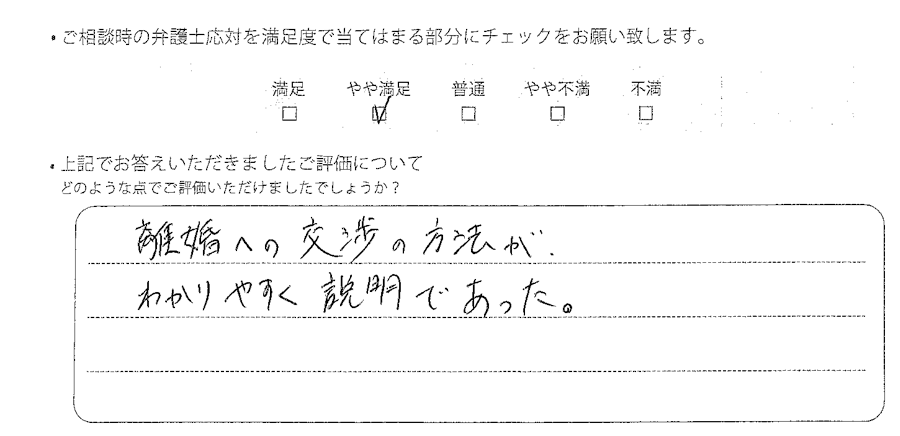 ・ご相談時の弁護士応対を満足度で当てはまる部分にチェックをお願い致します。
満足 やや満足 普通 やや不満 不満
□ ☑ □ □ □
・上記でお答えいただきましたご評価について
どのような点でご評価いただけましたでしょうか？
離婚への交渉の方法が、
わかりやすく説明であった。